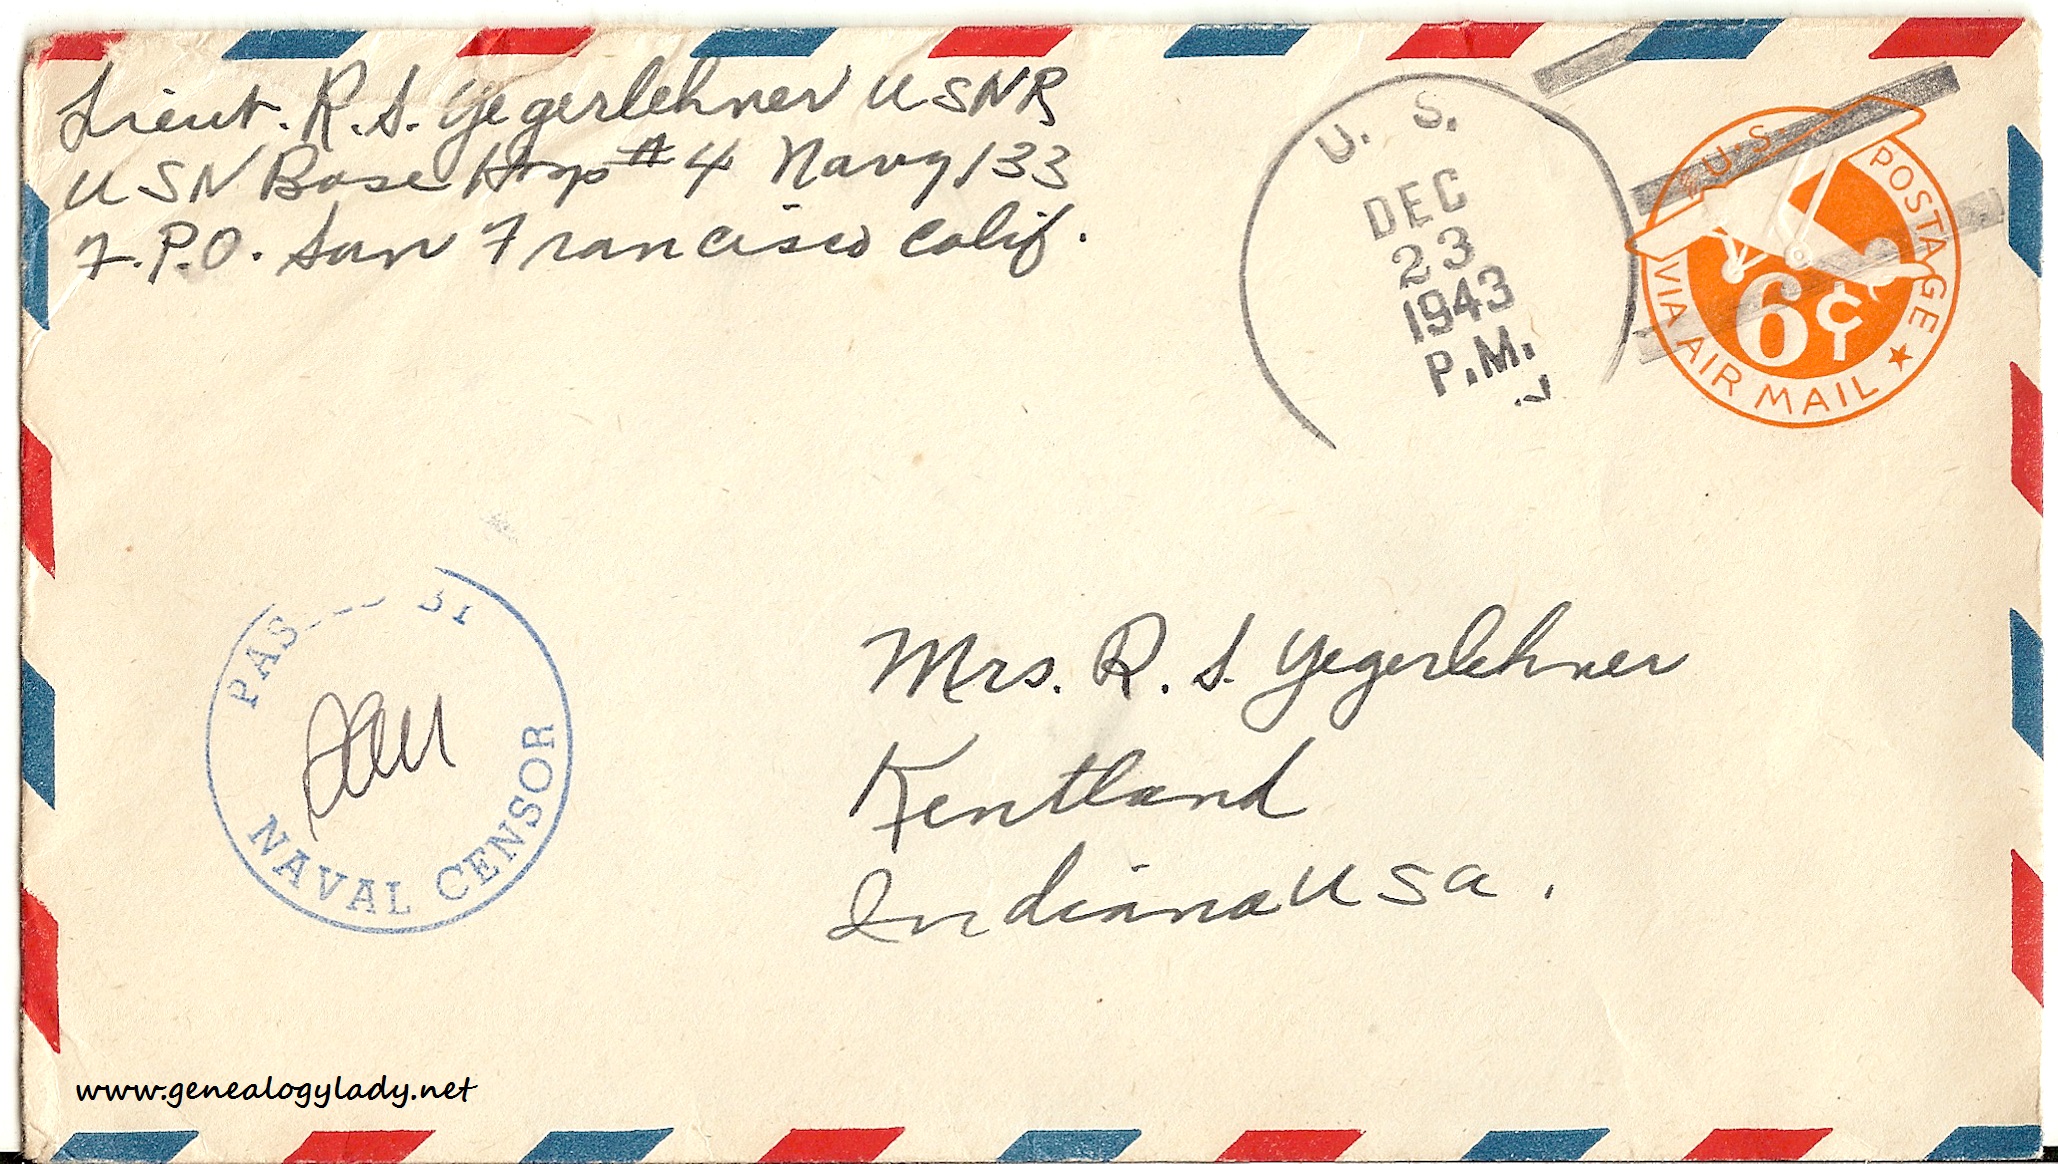 Lieut. R. S. Yegerlehner USNR
USN Base Hosp #4 Navy 133
F.P.O. San Francisco Calif.
U. S.
DEC
23
1943
P.M.
U.S. POSTAGE
6¢
VIA AIR MAIL
PASSED BY
NAVAL CENSOR
Mrs. R. S. Yegerlehner
Kentland
Indiana USA.
www.genealogylady.net